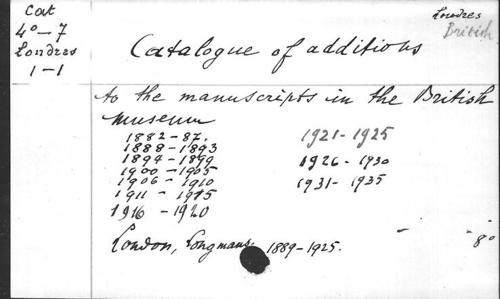 Cat
4º-7
Londres
1-1
Londres
British
Catalogue of additions
to the manuscripts in the British
Museum
1882-87.
1888-1893
1894-1899
1900-1905
1906-1910
1911-1915
1916-1920
1921-1925
1926-1930
1931-1935
London, Longmans, 1889-1925. " " 8º